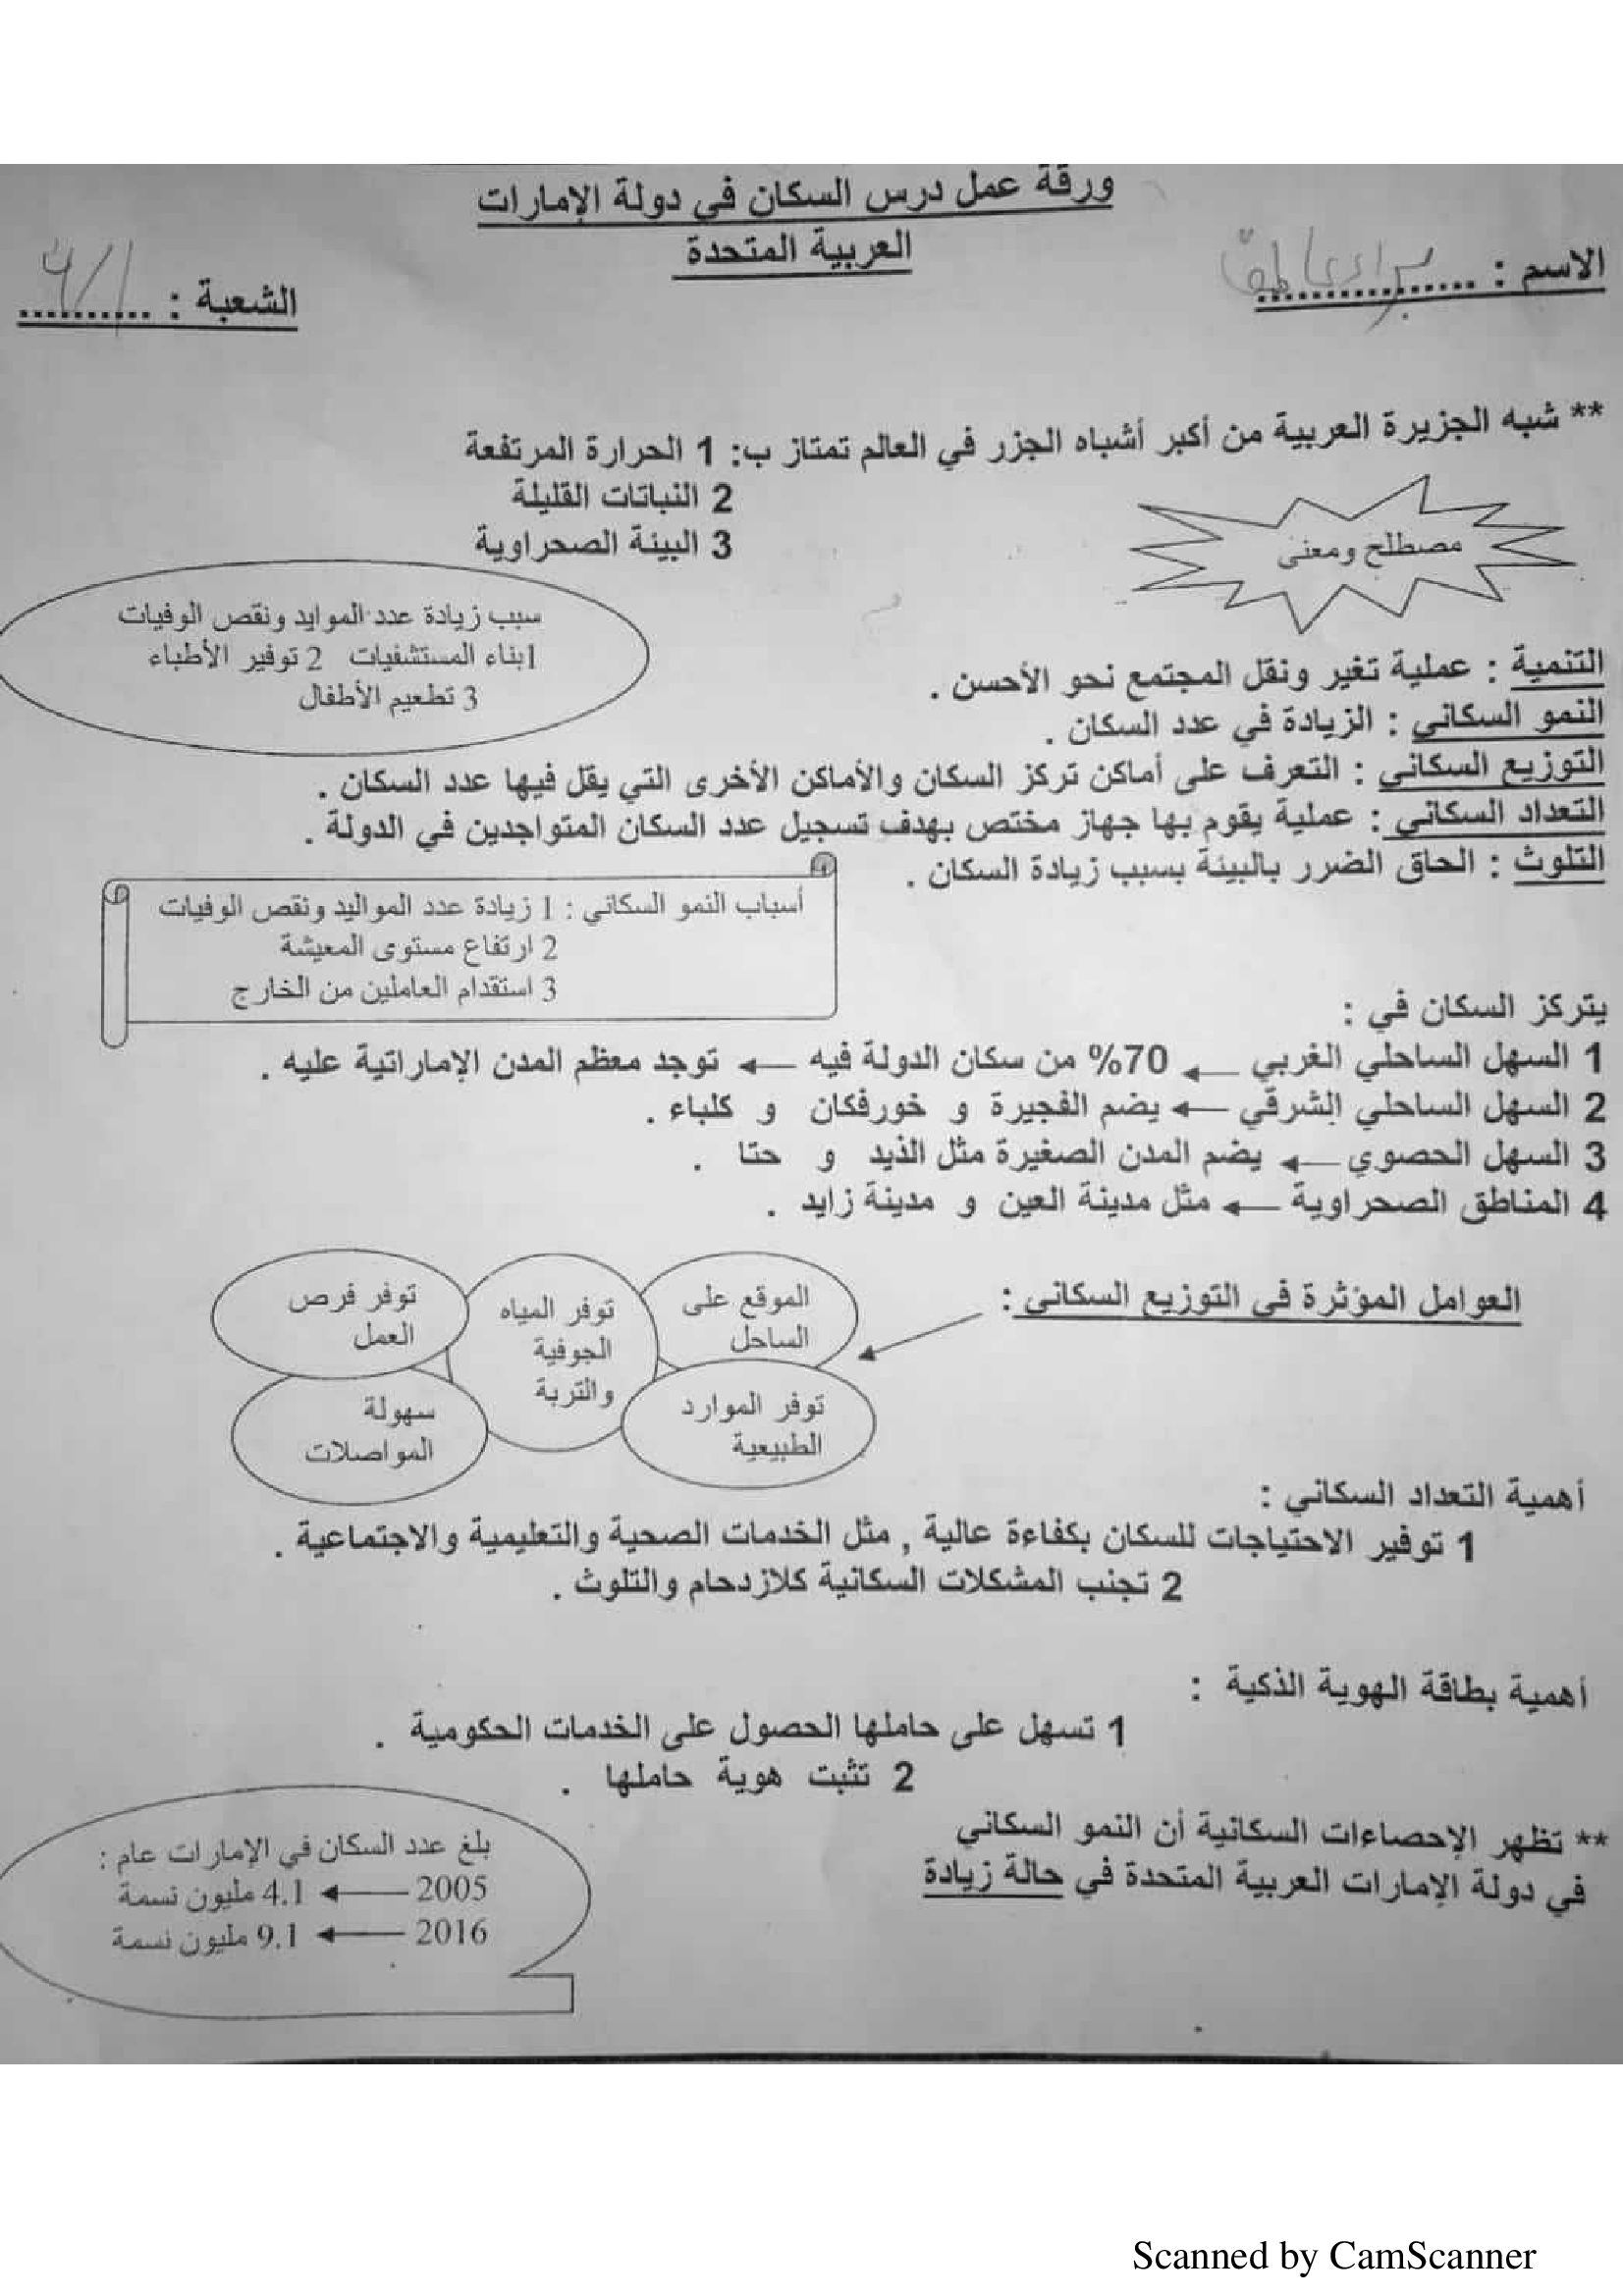 ورقة عمل درس السكان في دولة الإمارات
العربية المتحدة
الاسم : ................
الشعبة : ..........
** شبه الجزيرة العربية من أكبر أشباه الجزر في العالم تمتاز ب: 1 الحرارة المرتفعة
2 النباتات القليلة
3 البيئة الصحراوية
مصطلح ومعنى
سبب زيادة عدد الموايد ونقص الوفيات
1بناء المستشفيات 2 توفير الأطباء
3 تطعيم الأطفال
التنمية : عملية تغير ونقل المجتمع نحو الأحسن .
النمو السكاني : الزيادة في عدد السكان .
التوزيع السكاني : التعرف على أماكن تركز السكان والأماكن الأخرى التي يقل فيها عدد السكان .
التعداد السكاني : عملية يقوم بها جهاز مختص بهدف تسجيل عدد السكان المتواجدين في الدولة .
التلوث : الحاق الضرر بالبيئة بسبب زيادة السكان .
أسباب النمو السكاني : 1 زيادة عدد المواليد ونقص الوفيات
2 ارتفاع مستوى المعيشة
3 استقدام العاملين من الخارج
يتركز السكان في :
1 السهل الساحلي الغربي ← 70% من سكان الدولة فيه ← توجد معظم المدن الإماراتية عليه .
2 السهل الساحلي الشرقي ← يضم الفجيرة و خورفكان و كلباء .
3 السهل الحصوي ← يضم المدن الصغيرة مثل الذيد و حتا .
4 المناطق الصحراوية ← مثل مدينة العين و مدينة زايد .
العوامل المؤثرة في التوزيع السكاني :
الموقع على
الساحل
توفر المياه
الجوفية
والتربة
توفر فرص
العمل
توفر الموارد
الطبيعية
سهولة
المواصلات
أهمية التعداد السكاني :
1 توفير الاحتياجات للسكان بكفاءة عالية , مثل الخدمات الصحية والتعليمية والاجتماعية .
2 تجنب المشكلات السكانية كلازدحام والتلوث .
أهمية بطاقة الهوية الذكية :
1 تسهل على حاملها الحصول على الخدمات الحكومية .
2 تثبت هوية حاملها .
** تظهر الإحصاءات السكانية أن النمو السكاني
في دولة الإمارات العربية المتحدة في حالة زيادة
بلغ عدد السكان في الإمارات عام :
2005 ← 4.1 مليون نسمة
2016 ← 9.1 مليون نسمة
Scanned by CamScanner